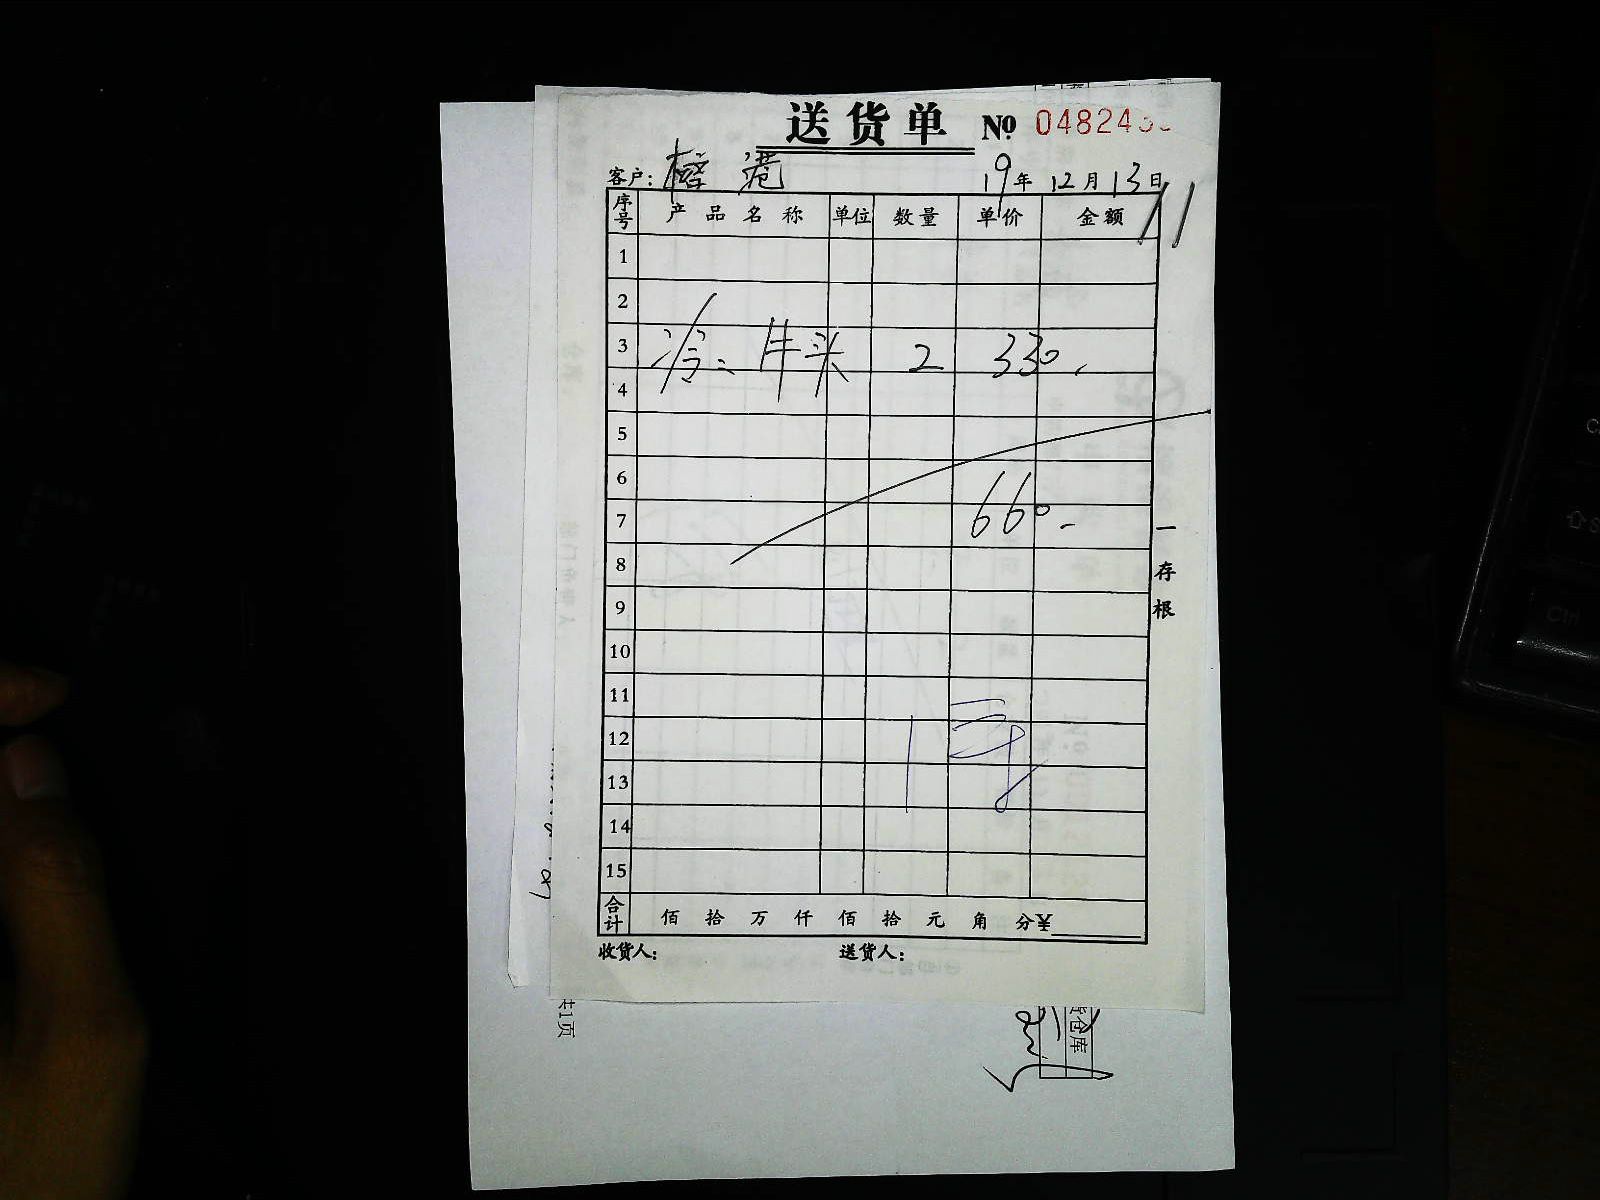 送货单 № 04824
客户: 19年12月13日
序号 产品名称 单位 数量 单价 金额
1
2
3 2 330
4
5
6
7 660
8
9
10
11
12
13
14
15
合计 佰 拾 万 仟 佰 拾 元 角 分¥
收货人: 送货人:
一存根
共1页
仓库